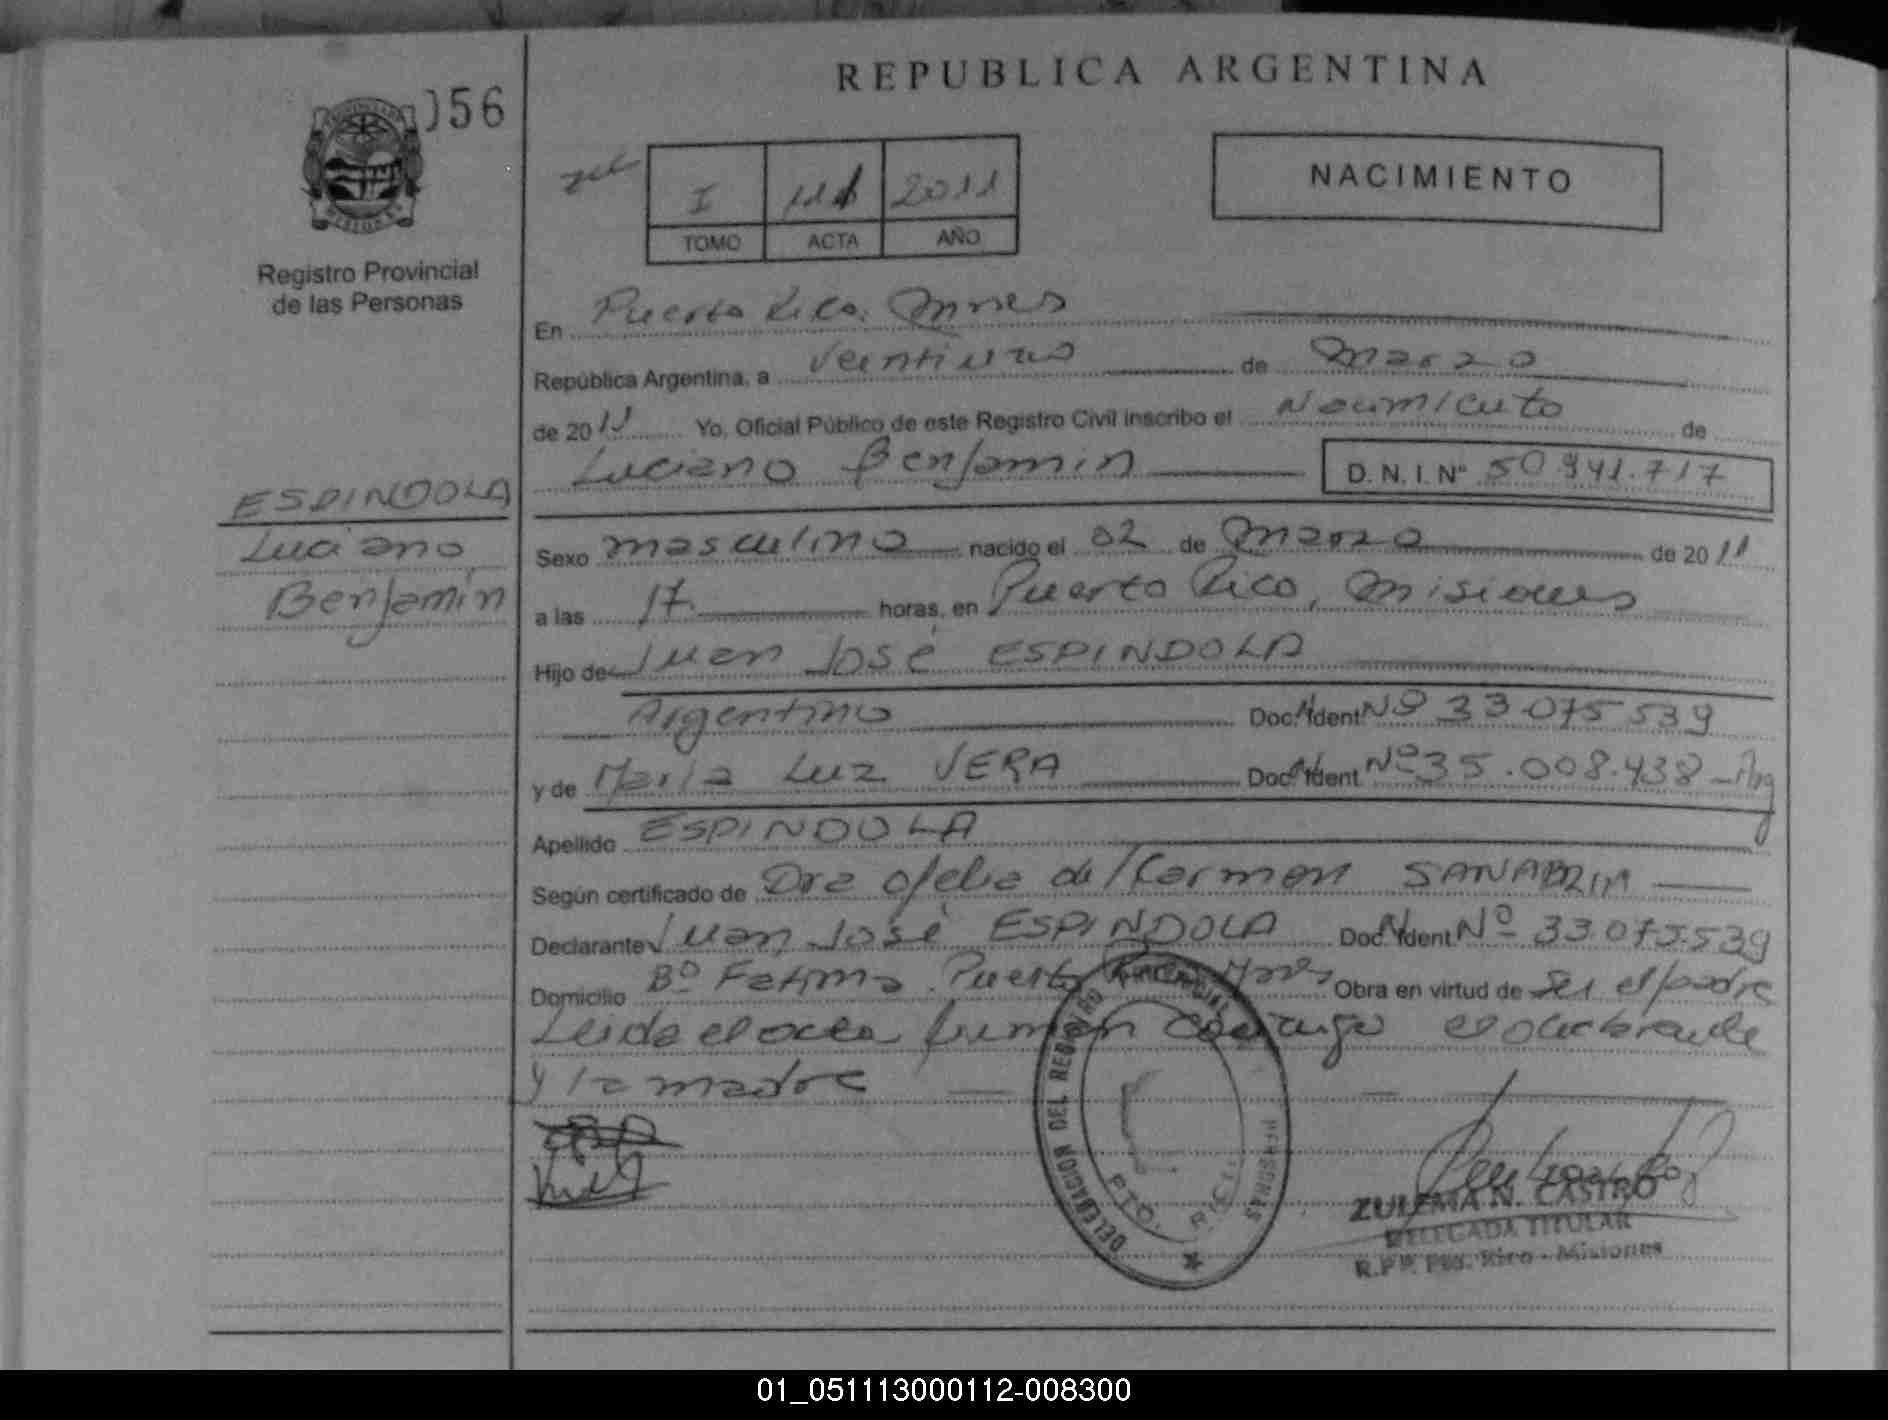 056
REPUBLICA ARGENTINA
NACIMIENTO
I 111 2011
TOMO ACTA AÑO
Registro Provincial
de las Personas
En Puerto Rico. Mnes
República Argentina, a veintiuno de Marzo
de 2011 Yo, Oficial Público de este Registro Civil inscribo el Nacimiento de
Luciano Benjamin D.N.I. Nº 50.941.717
ESPINDOLA
Luciano
Benjamín
Sexo masculino nacido el 02 de Marzo de 2011
a las 17 horas, en Puerto Rico, Misiones
Hijo de Juan José ESPINDOLA
Argentino Doc. Ident Nº 33.075.539
y de María Luz VERA Doc. Ident Nº 35.008.438 - Arg
Apellido ESPINDOLA
Según certificado de Dra Ofelia del Carmen SANABRIA
Declarante Juan José ESPINDOLA Doc. Ident Nº 33.075.539
Domicilio Bº Fatima. Puerto Rico Mnes Obra en virtud de ser el padre
Leida el acta firman conmigo el declarante
y la madre
DELEGACION DEL REGISTRO PROVINCIAL PERSONAS
PTO. RICO
ZULEMA N. CASTRO
DELEGADA TITULAR
R.P.P. Pto. Rico - Misiones
01_051113000112-008300